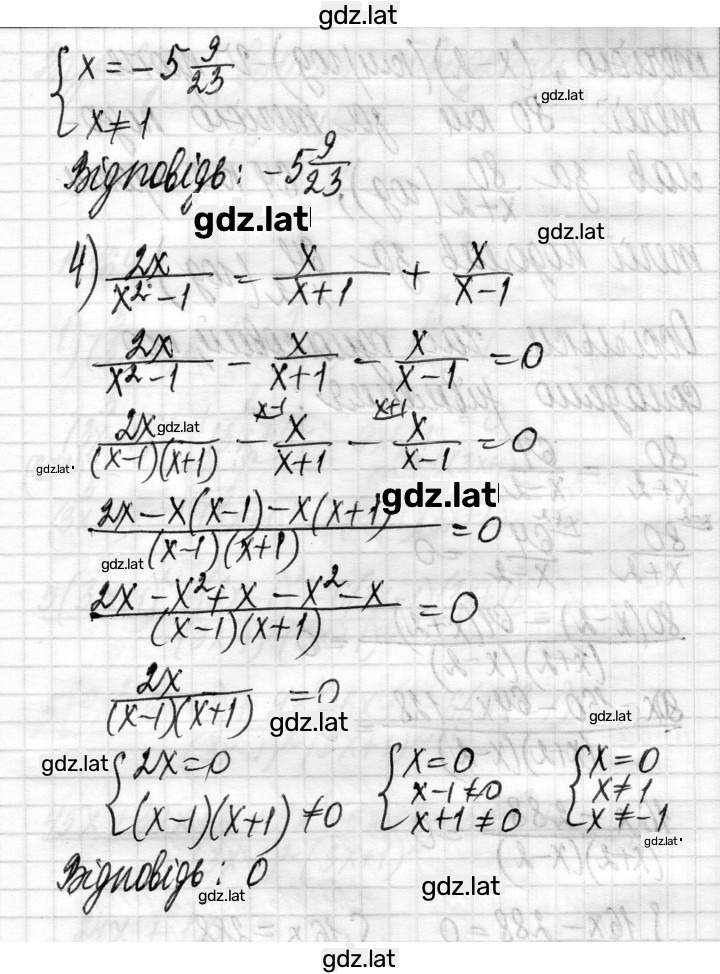 gdz.lat
{ x = -5 9/23
gdz.lat
x ≠ 1
Відповідь: -5 9/23.
gdz.lat
gdz.lat
4) 2x/(x² - 1) = x/(x+1) + x/(x-1)
2x/(x² - 1) - x/(x+1) - x/(x-1) = 0
x-1 x+1
2x/((x-1)(x+1)) - x/(x+1) - x/(x-1) = 0
gdz.lat
gdz.lat
gdz.lat
(2x - x(x-1) - x(x+1))/((x-1)(x+1)) = 0
gdz.lat
(2x - x² + x - x² - x)/((x-1)(x+1)) = 0
2x/((x-1)(x+1)) = 0
gdz.lat
gdz.lat
gdz.lat
{ 2x = 0 { x = 0 { x = 0
(x-1)(x+1) ≠ 0 x-1 ≠ 0 x ≠ 1
x+1 ≠ 0 x ≠ -1
gdz.lat
Відповідь: 0
gdz.lat
gdz.lat
gdz.lat